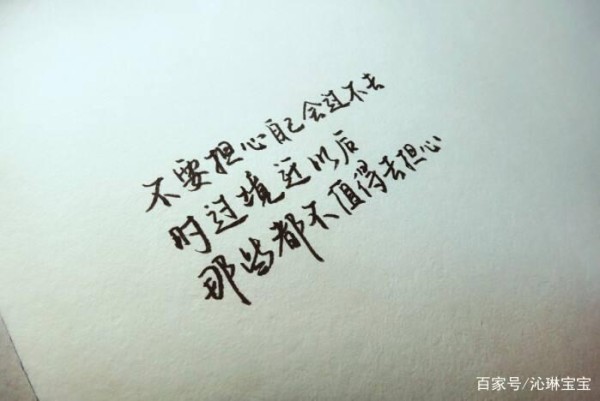 不要担心自己会过不去
时过境迁以后
那些都不值得去担心
百家号/沁琳宝宝